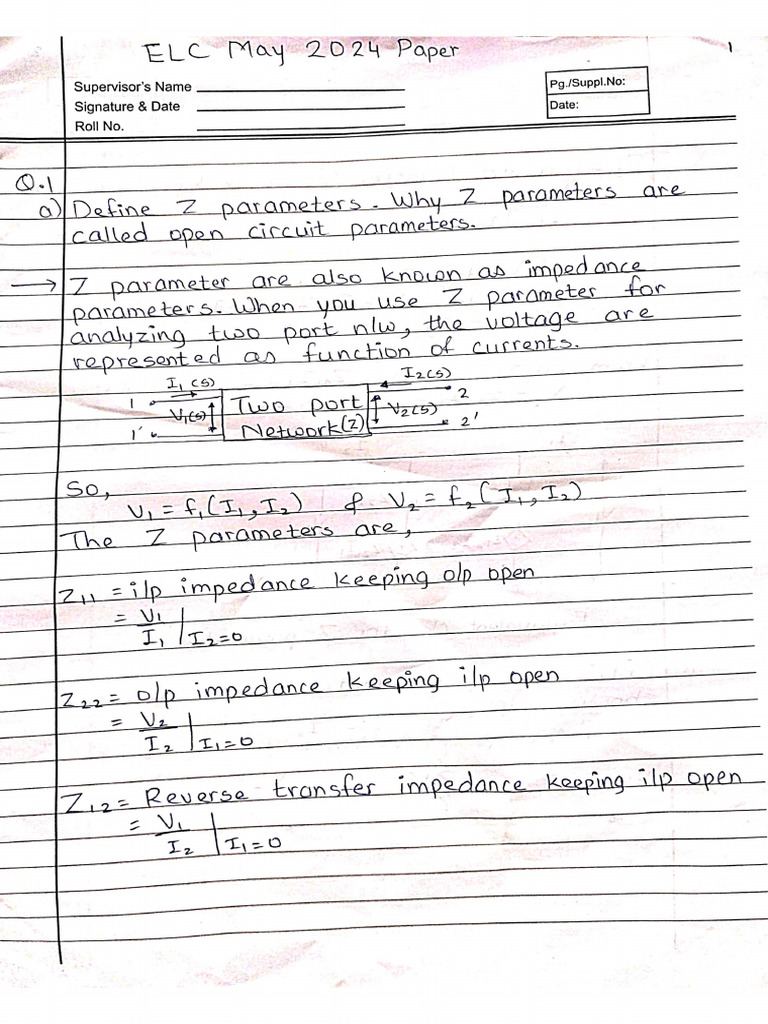 ELC May 2024 Paper
1
Supervisor's Name
Pg./Suppl.No:
Signature & Date
Date:
Roll No.
Q.1
a) Define Z parameters. Why Z parameters are
called open circuit parameters.
→ Z parameter are also known as impedance
parameters. When you use Z parameter for
analyzing two port n/w, the voltage are
represented as function of currents.
I₁(s) I₂(s)
1 V₁(s) Two port V₂(s) 2
1' Network(Z) 2'
So,
V₁ = f₁(I₁, I₂) & V₂ = f₂(I₁, I₂)
The Z parameters are,
Z₁₁ = i/p impedance keeping o/p open
= V₁/I₁ | I₂=0
Z₂₂ = o/p impedance keeping i/p open
= V₂/I₂ | I₁=0
Z₁₂ = Reverse transfer impedance keeping i/p open
= V₁/I₂ | I₁=0